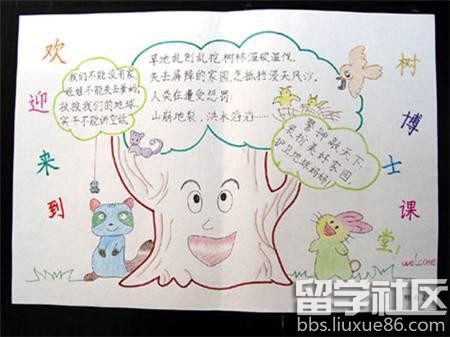 欢迎来到
树博士课堂!
welcome
我们不能没有家,
娃娃不能失去爹妈,
救救我们的地球,
实干不能讲空话。
草地乱刨乱挖,树林滥砍滥伐,
失去屏障的家园,怎抵挡漫天风沙,
人类在遭受惩罚:
山崩地裂,洪水滔滔……
警钟敲天下:
爱惜美好家园,
护卫地球妈妈!
留学社区
bbs.liuxue86.com